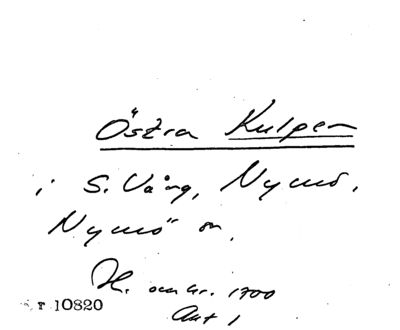 Östra Kulpen
i S. Vång, Nymö,
Nymö sn.
H. omkr. 1700
Akt 1
T 10820